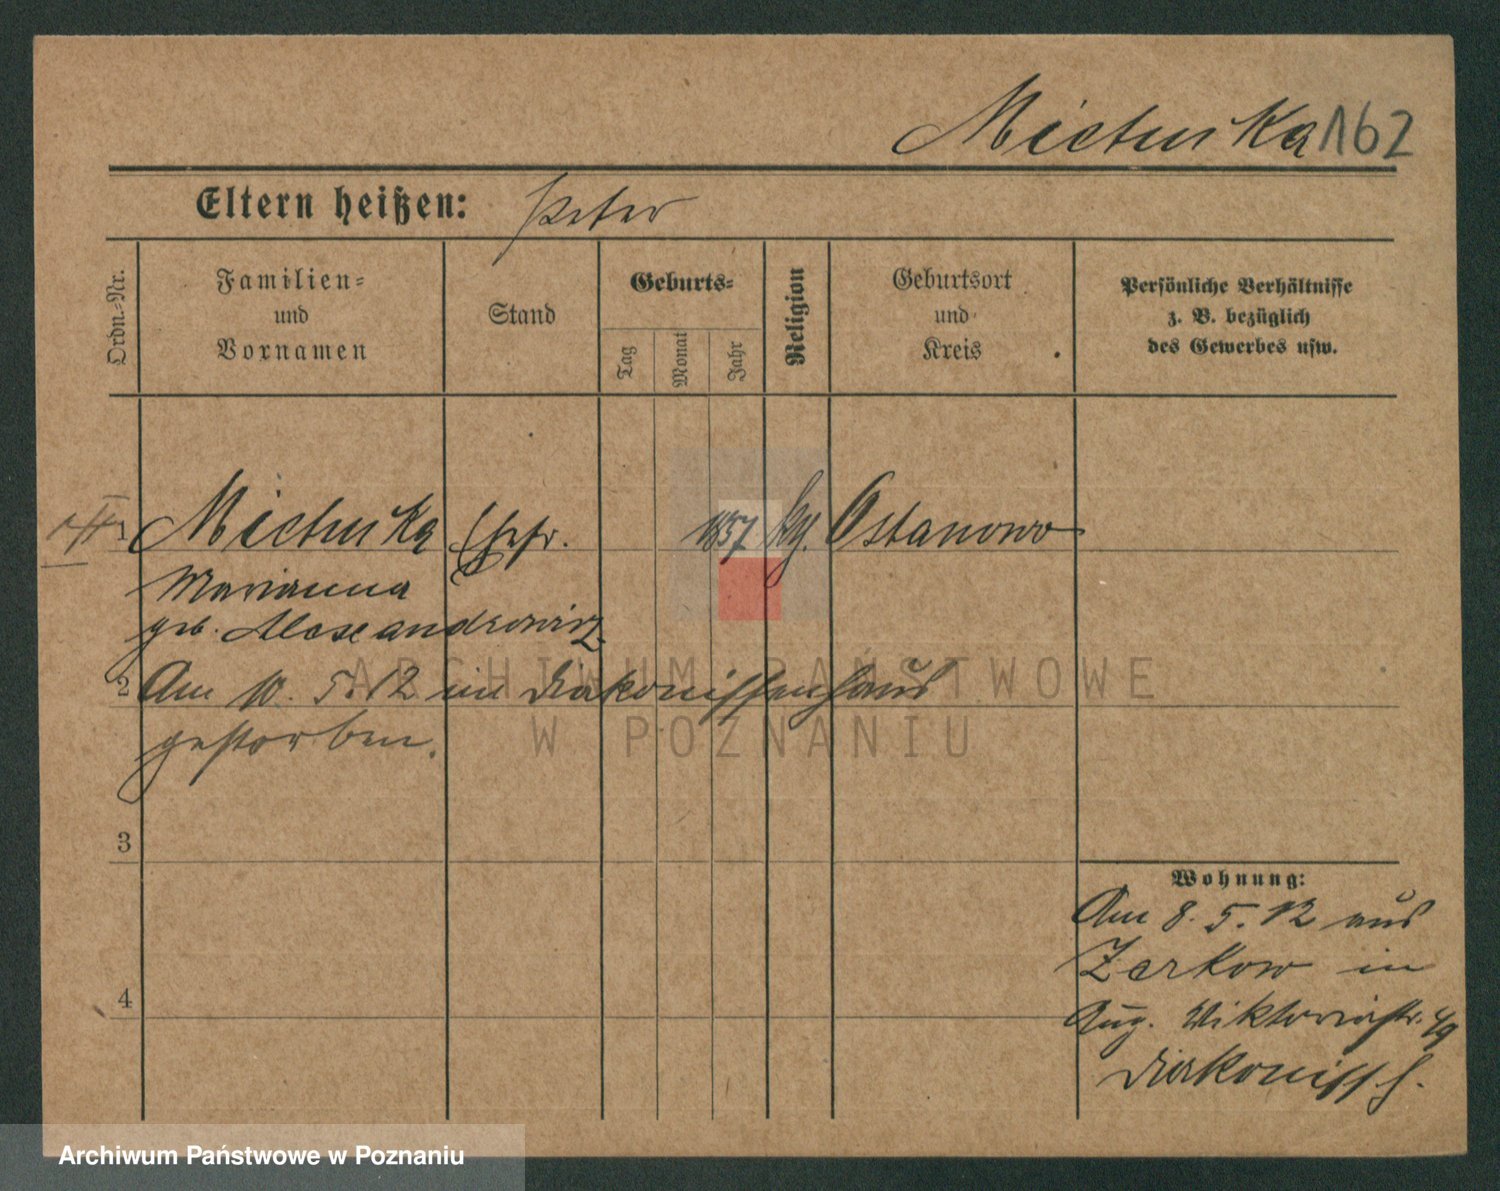 Michuska 162
Eltern heißen: Peter
Ordn.-Nr.
Familien-
und
Vornamen
Stand
Geburts-
Tag
Monat
Jahr
Religion
Geburtsort
und
Kreis
Persönliche Verhältnisse
z. B. bezüglich
des Gewerbes usw.
1 Michuska Ehefr. 1857 kth. Ostanowo
Marianna
geb. Alexandrowicz
2 Am 10. 5. 12 im Diakonissenhaus
gestorben.
3
4
Wohnung:
Am 8. 5. 12 aus
Zerkow in
Aug. Viktoriastr. 49
Diakoniss h.
ARCHIWUM PAŃSTWOWE
W POZNANIU
Archiwum Państwowe w Poznaniu